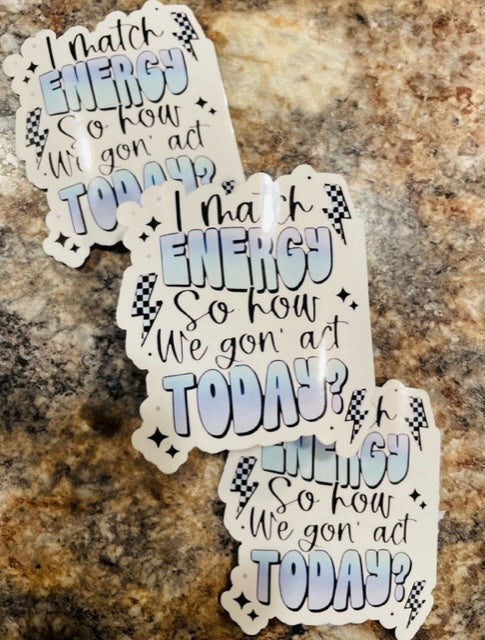 I match
ENERGY
So how
We gon' act
TODAY?
I match
ENERGY
So how
We gon' act
TODAY?
h
ENERGY
So how
We gon' act
TODAY?